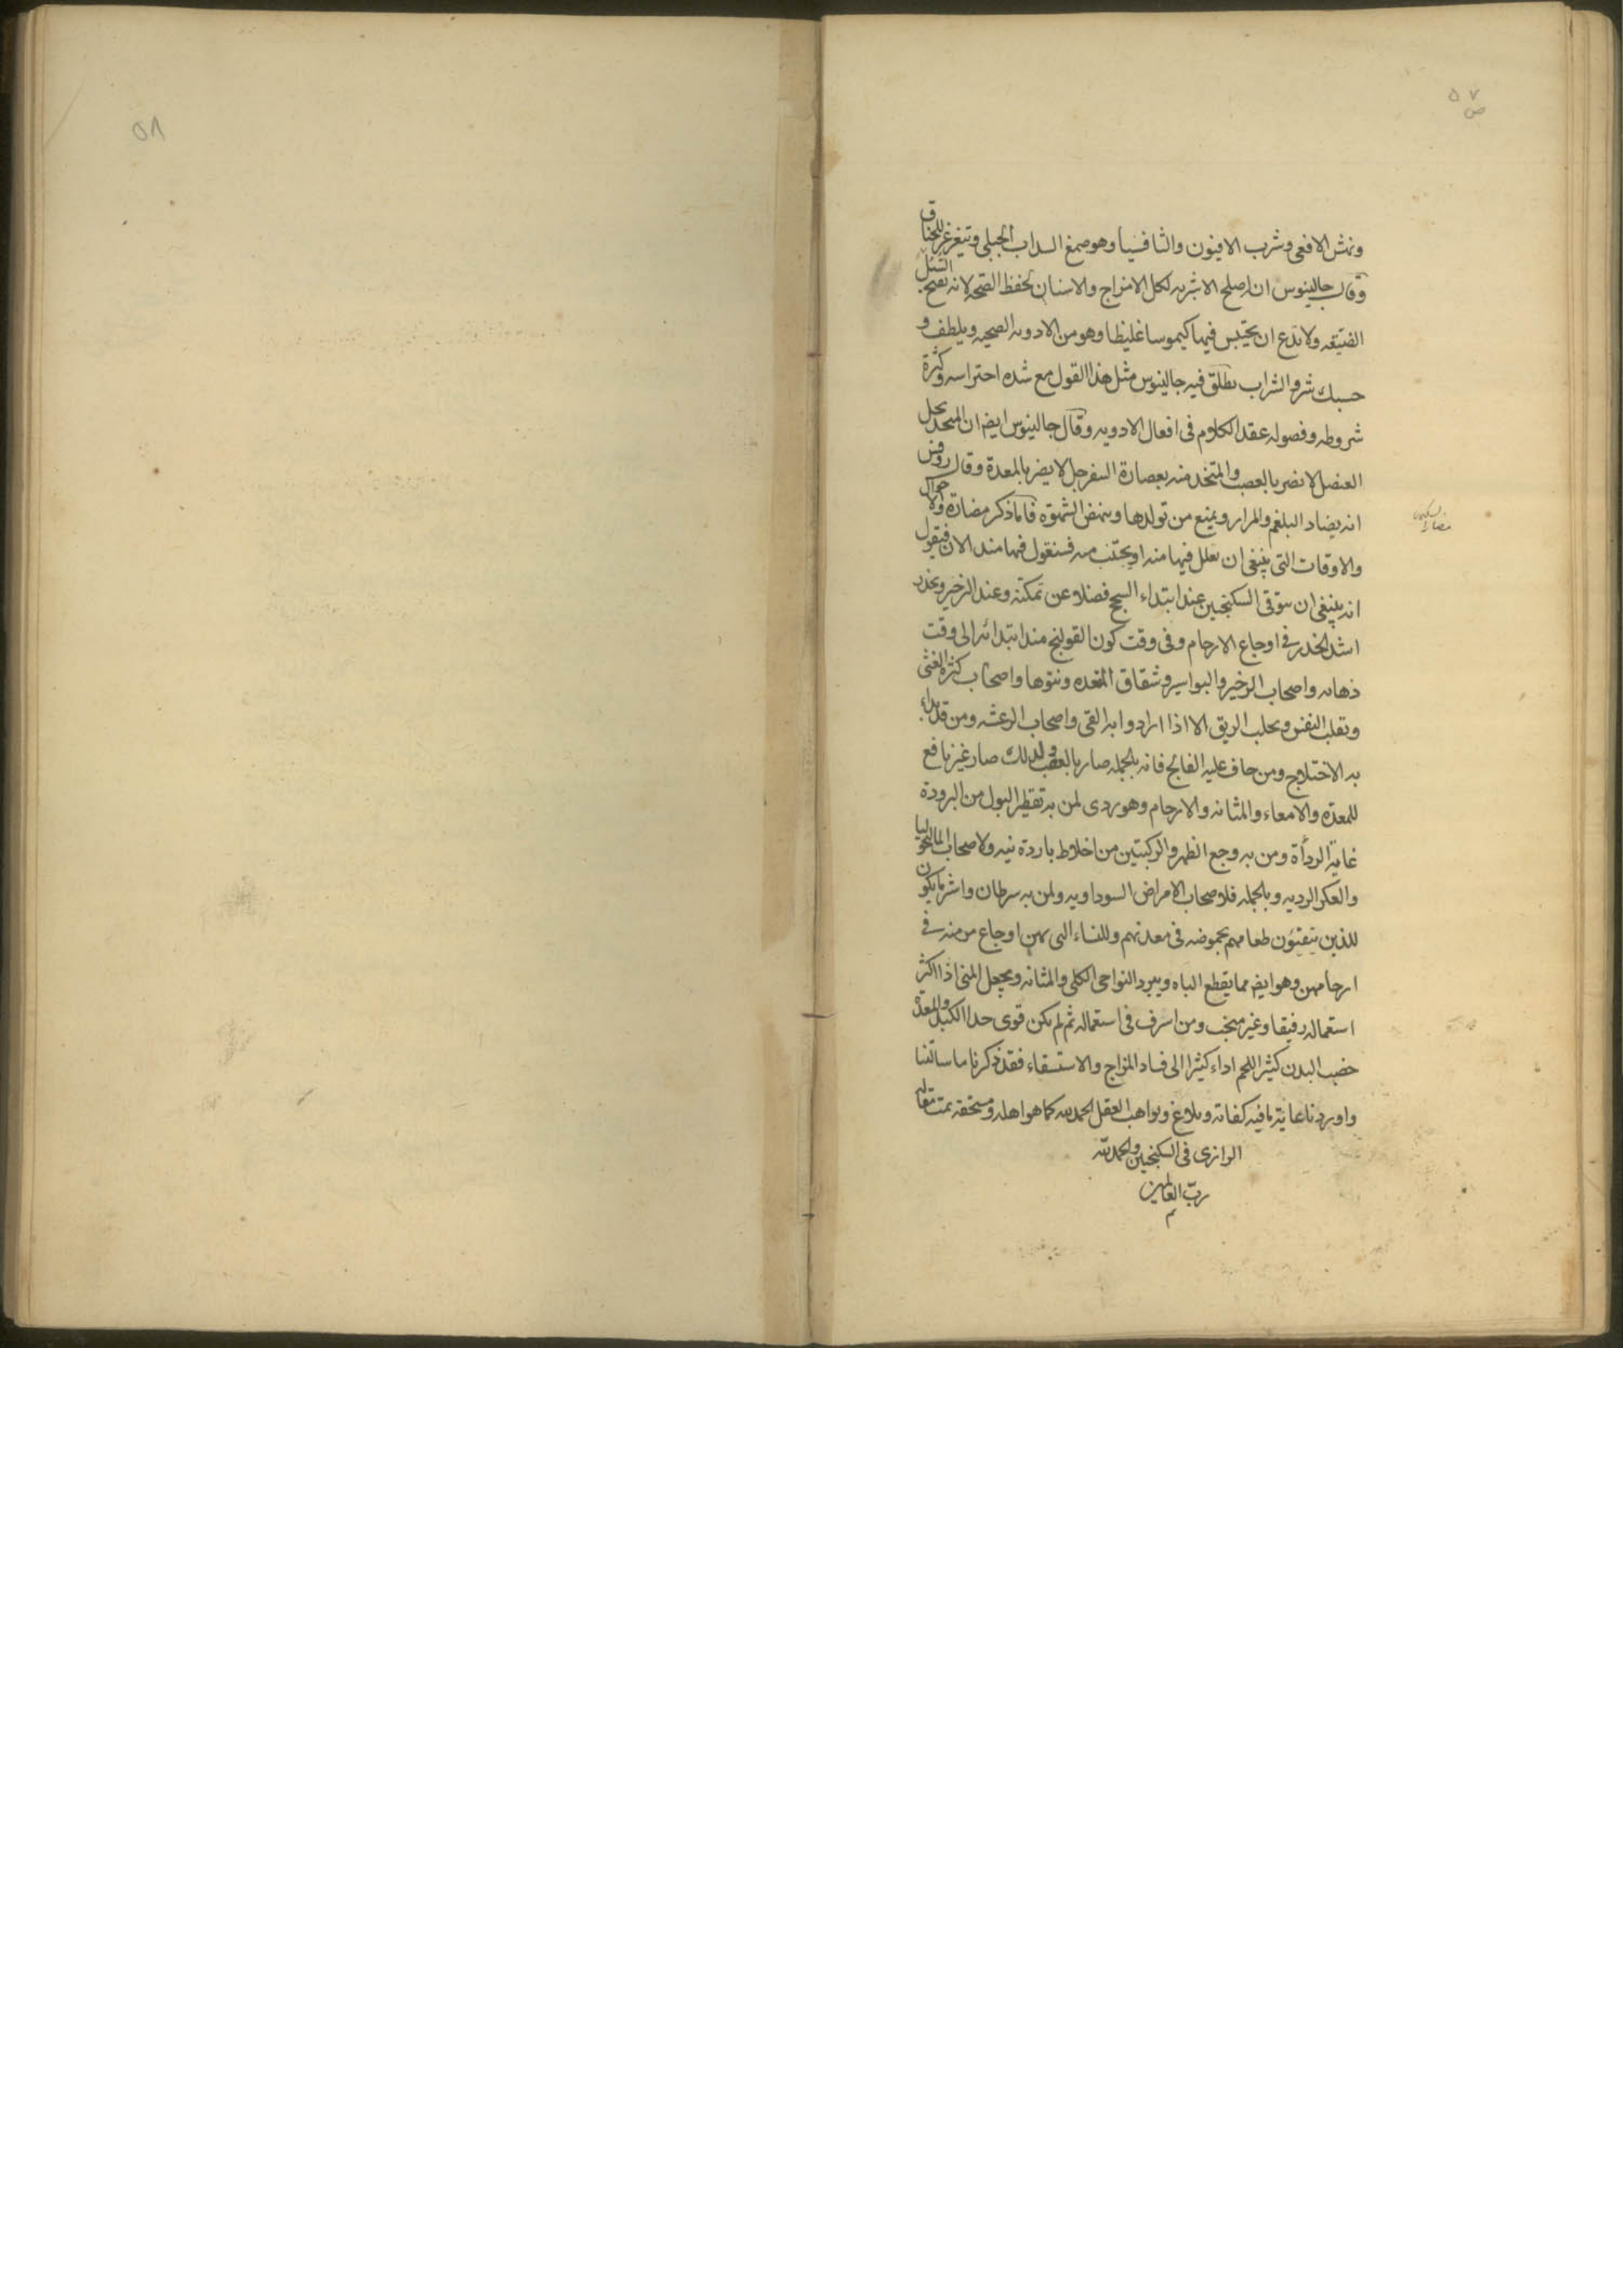 ص ٥٧
ونهش الافعى وشرب الافيون والثافسيا وهو صمغ السداب الجبلى ويتغرغر للخناق
وقال جالينوس ان اصلح الاشربه لكل الامزاج والاسنان لحفظ الصحه لانه يفتح السبل
الضيقه ولا يدع ان يحتبس فيها كيموسا غليظا وهو من الادويه الصحيه ويلطف و
حسبك شرف الشراب يطلق فيه جالينوس مثل هذا القول مع شده احتراسه وكثرة
شروطه وفصوله عقد الكلام فى افعال الادويه وقال جالينوس ايضا ان المتخذ بخل
العنصل لا يضر بالعصب والمتخذ منه بعصارة السفرجل لا يضر بالمعدة وقال روفس
انه يضاد البلغم والمرار ويمنع من تولدها وينهض الشهوه فاما ذكر مضاره والاحوال
والاوقات التى ينبغى ان يقلل فيها منه او يجتنب منه فسنقول فيها منذ الان فيقول
مضار السكنجبين
انه ينبغى ان يتوقى السكنجبين عند ابتداء السحج فضلا عن تمكنه وعند الزحير ويحذر
اشد الحذر فى اوجاع الارحام وفى وقت كون القولنج منذ ابتدائه الى وقت
ذهابه واصحاب الزحير والبواسير وشقاق المقعده ونتوها واصحاب كثرة الغثى
وتقلب النفس وتحلب الريق الا اذا ارادوا به القى واصحاب الرعشه ومن قد بدا
به الاختلاج ومن خاف عليه الفالج فانه بالجمله ضار بالعصب ولذلك صار غير نافع
للمعده والامعاء والمثانه والارحام وهو ردى لمن به تقطير البول من البرودة
غاية الردأة ومن به وجع الظهر والركبتين من اخلاط باردة نيه ولاصحاب المالنخوليا
والفكر الرديه وبالجمله فلاصحاب الامراض السوداويه ولمن به سرطان واشر ما يكون
للذين يتقيئون طعامهم بحموضه فى معدتهم وللنساء التى بهن اوجاع مزمنه فى
ارحامهن وهو ايضا مما يقطع الباه ويبرد النواحى الكلى والمثانه ويجعل المنى اذا اكثر
استعماله رقيقا وغير منجب ومن اسرف فى استعماله ثم لم يكن قوى حدا الكبد والمعدة
خصب البدن كثير اللحم اداء كثيرا الى فساد المزاج والاستسقاء فقد ذكرنا ما سالتنا
واوردنا غاية ما فيه كفاية وبلاغ ولواهب العقل الحمد لله كما هو اهله ومستحقه تمت مقاله
الرازى فى السكنجبين والحمد لله
رب العالمين
م
٥٨